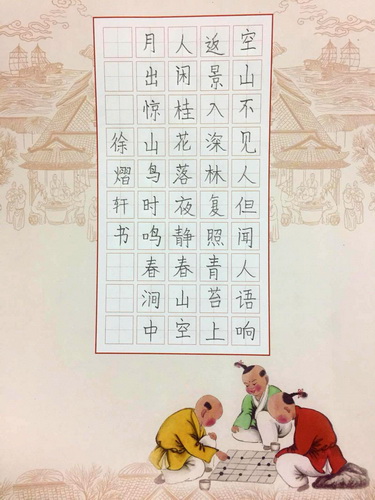 空山不见人但闻人语响
返景入深林复照青苔上
人闲桂花落夜静春山空
月出惊山鸟时鸣春涧中
徐熠轩书